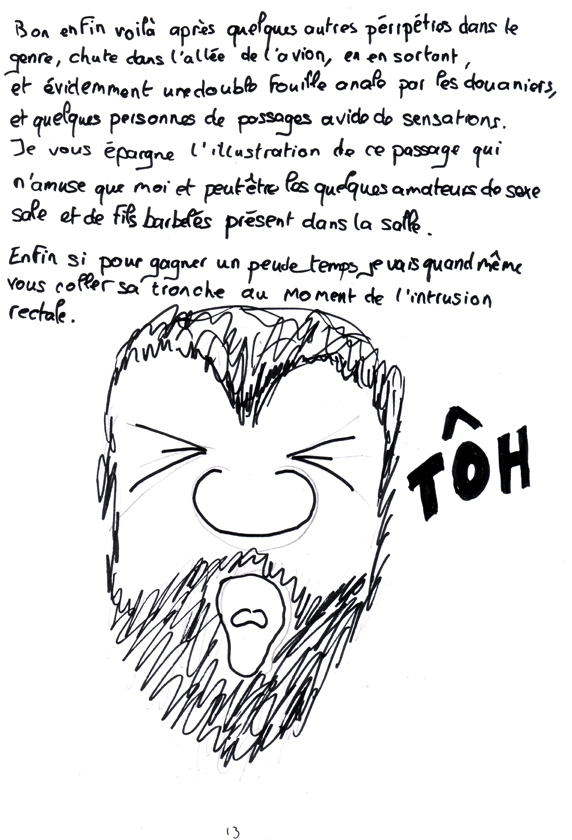 Bon enfin voilà après quelques autres péripétios dans le
genre, chute dans l'allée de l'avion, en en sortant,
et évidemment une double fouille anale par les douaniers,
et quelques personnes de passages avide de sensations.
Je vous épargne l'illustration de ce passage qui
n'amuse que moi et peut être les quelques amateurs de sexe
sale et de fils barbelés présent dans la salle.
Enfin si pour gagner un peu de temps je vais quand même
vous coller sa tronche au moment de l'intrusion
rectale.
TÔH
13